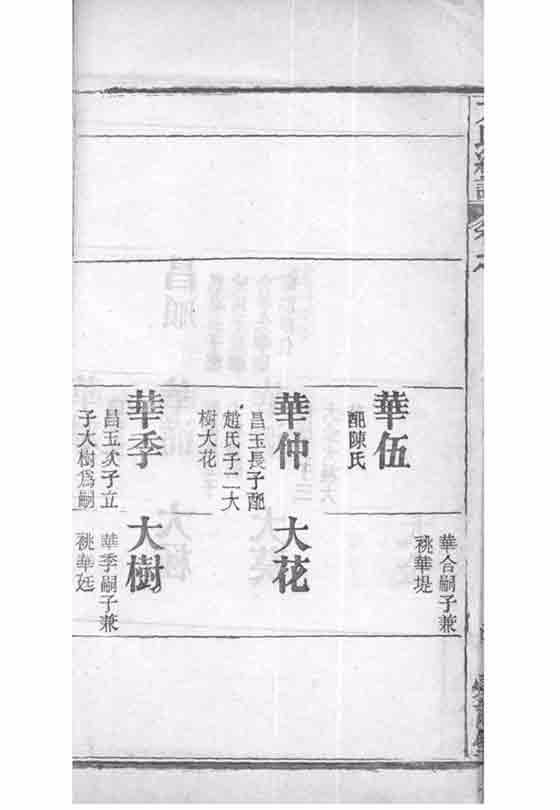 華伍
配陳氏
華合嗣子兼
祧華堤
華仲
昌玉長子配
趙氏子二大
樹大花
大花
華季
昌玉次子立
子大樹為嗣
大樹
華季嗣子兼
祧華廷